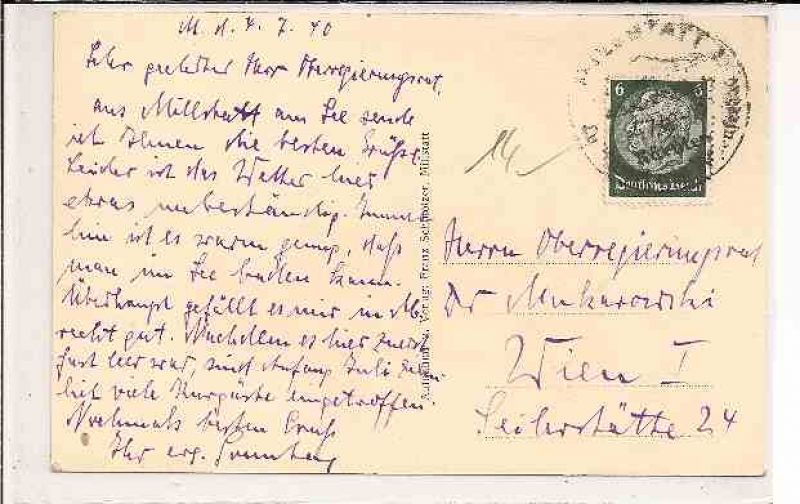 M. d. 4. 7. 40
Sehr geehrter Herr Oberregierungsrat,
aus Millstatt am See sende
ich Ihnen die besten Grüße.
Leider ist das Wetter hier
etwas unbeständig. Immer
hin ist es warm genug, daß
man im See baden kann.
Überhaupt gefällt es mir in M.
recht gut. Nachdem es hier zuerst
fast leer war, sind Anfang Juli ziem
lich viele Kurgäste eingetroffen.
Nochmals besten Gruß
Ihr erg.
14
Verlag: Franz Schihotzer, Millstatt
MILLSTATT
6 6
Deutsches Reich
Herrn Oberregierungsrat
Dr
Wien I
Seilerstätte 24